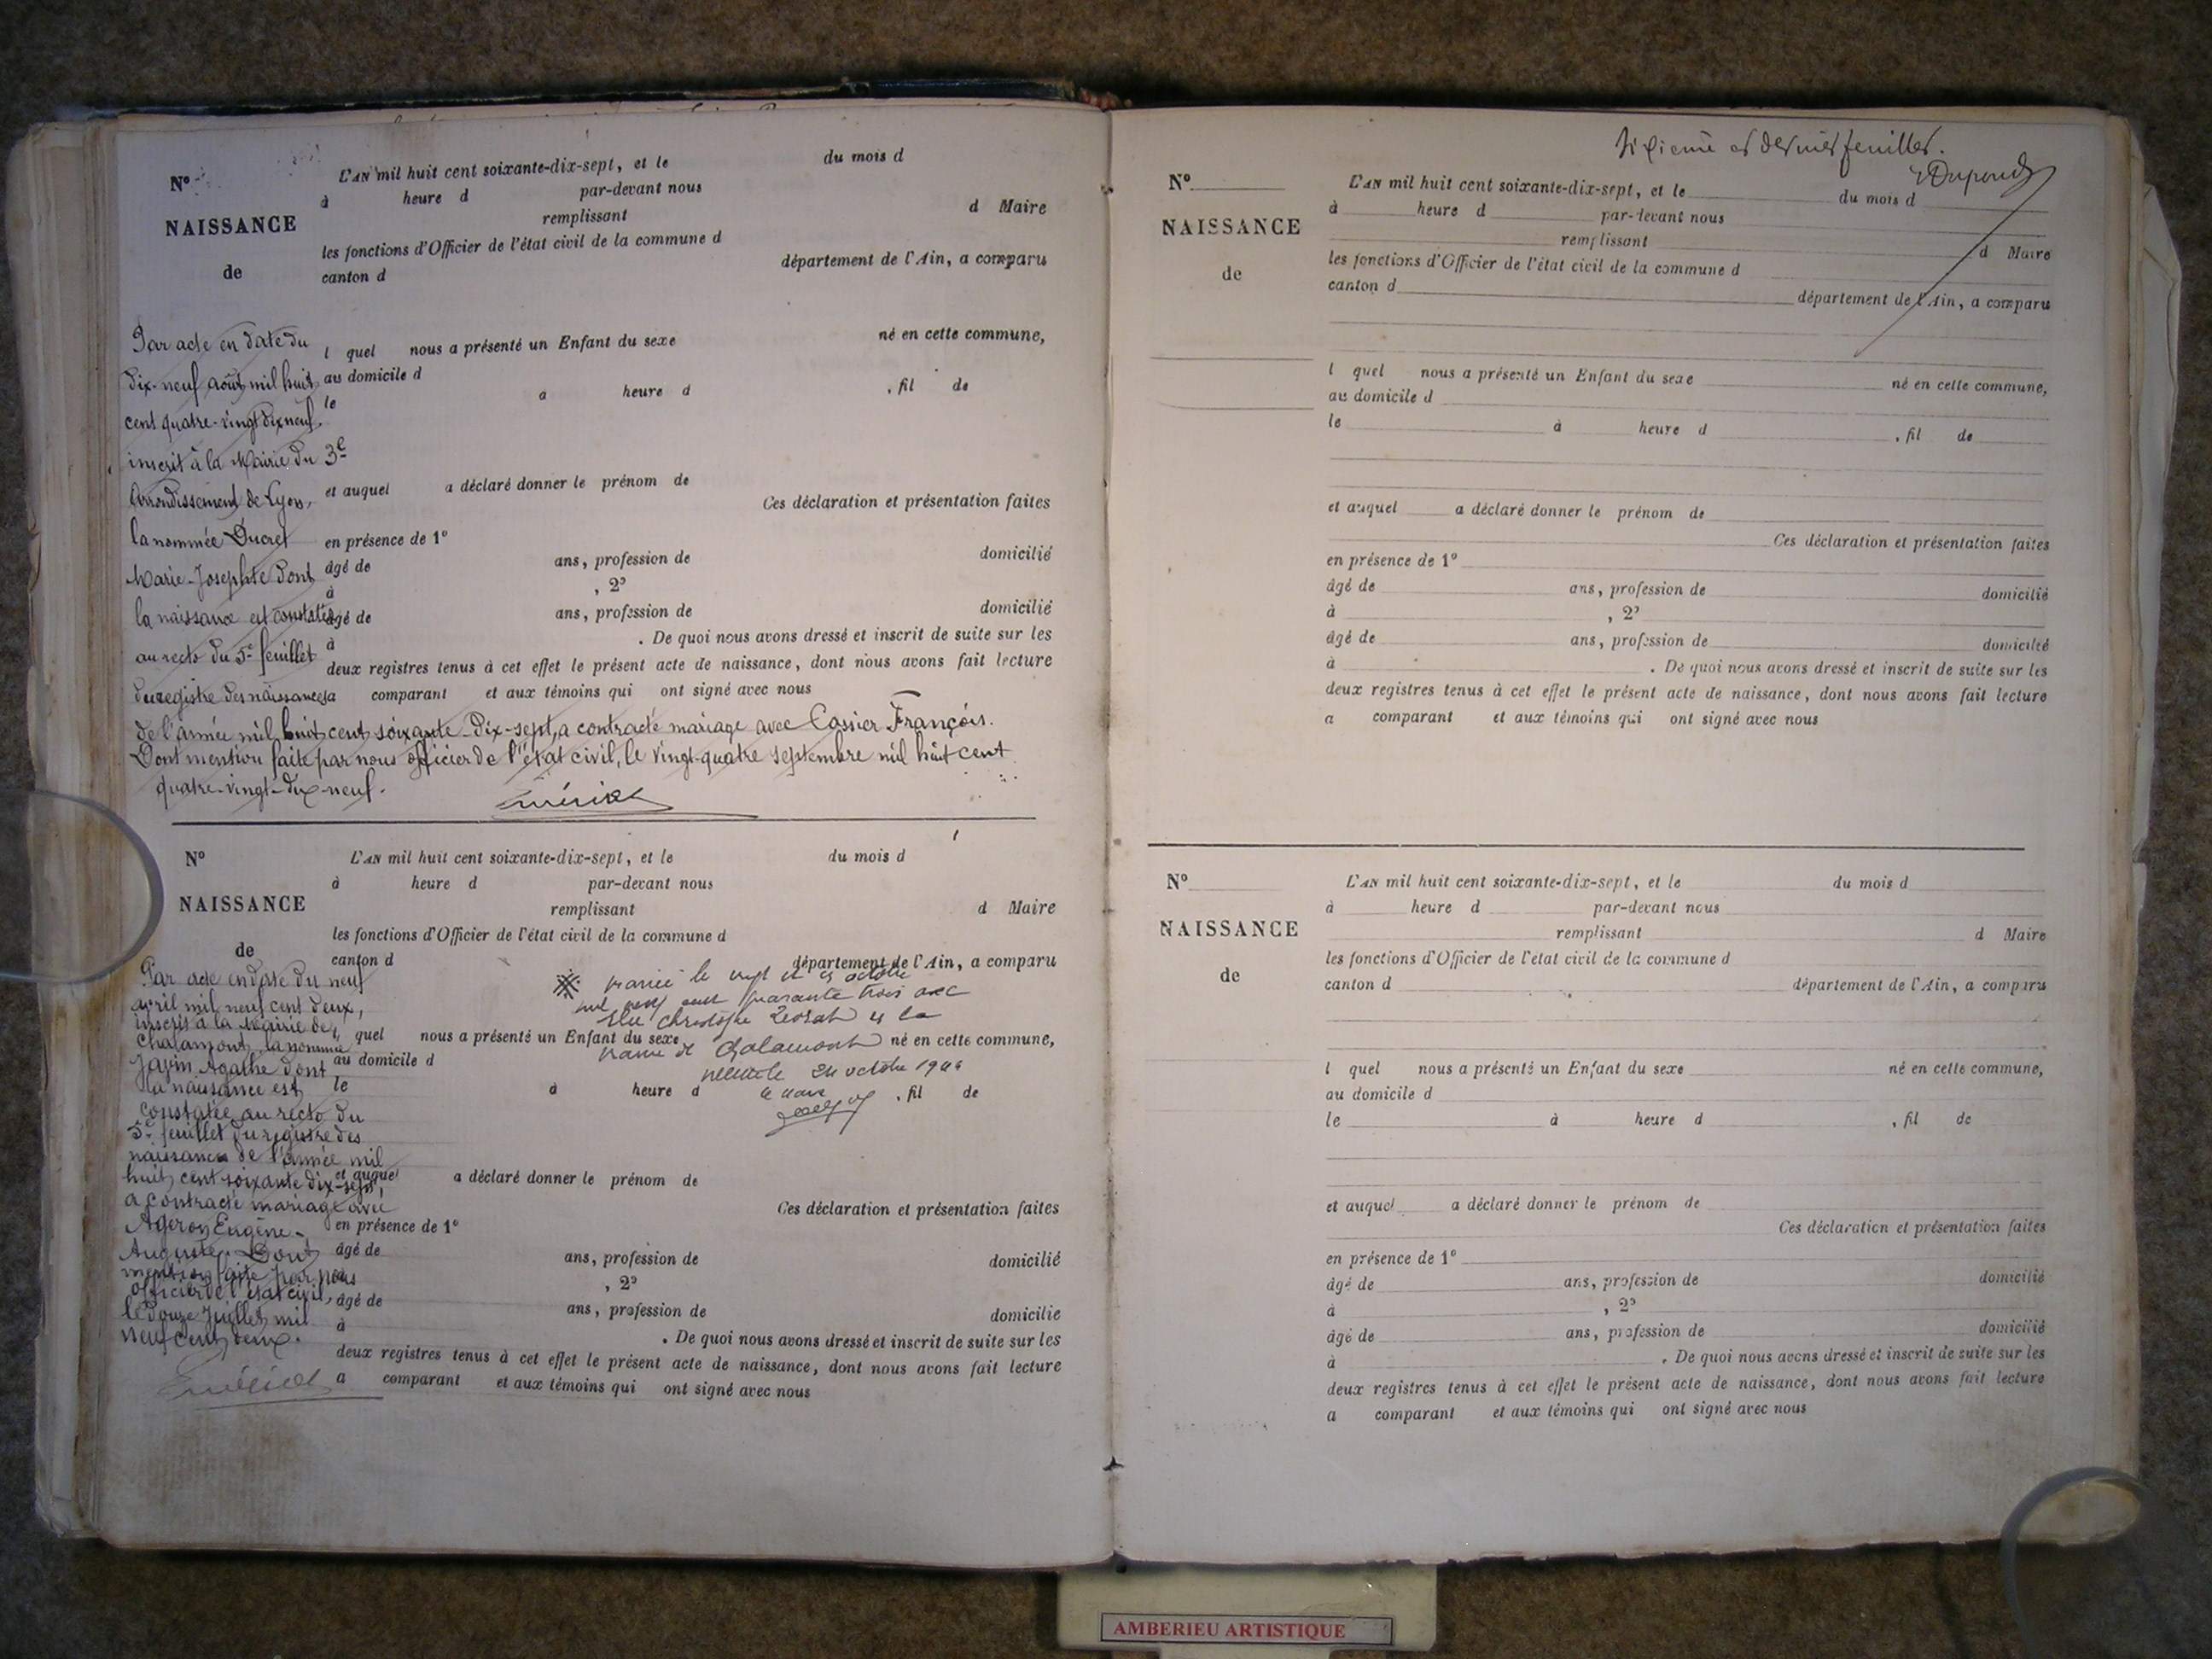 N° L'AN mil huit cent soixante-dix-sept, et le du mois d
à heure d par-devant nous
NAISSANCE remplissant d Maire
les fonctions d'Officier de l'état civil de la commune d
de canton d département de l'Ain, a comparu
Par acte en date du l quel nous a présenté un Enfant du sexe né en cette commune,
dix-neuf août mil huit au domicile d
le a heure d , fil de
cent quatre-vingt dix neuf,
inscrit à la Mairie du 3e
Arrondissement de Lyon, et auquel a déclaré donner le prénom de
Ces déclaration et présentation faites
la nommée Ducret en présence de 1°
Marie-Josephte dont âgé de ans, profession de domicilié
à , 2°
la naissance est constatée âgé de ans, profession de domicilié
au recto du 5e feuillet à . De quoi nous avons dressé et inscrit de suite sur les
deux registres tenus à cet effet le présent acte de naissance, dont nous avons fait lecture
du registre des naissances a comparant et aux témoins qui ont signé avec nous
de l'année mil huit cent soixante-dix-sept, a contracté mariage avec Cassier François.
Dont mention faite par nous officier de l'état civil, le vingt-quatre septembre mil huit cent
quatre-vingt-dix-neuf.
N° L'AN mil huit cent soixante-dix-sept, et le du mois d
à heure d par-devant nous
NAISSANCE remplissant d Maire
les fonctions d'Officier de l'état civil de la commune d
de canton d département de l'Ain, a comparu
Par acte en date du neuf
avril mil neuf cent deux,
inscrit à la Mairie de
Chalamont, la nommée
Javin Agathe dont
la naissance est
constatée au recto du
5e feuillet du registre des
naissances de l'année mil
huit cent soixante dix-sept,
a contracté mariage avec
Ageron Eugène-
Auguste. Dont
mention faite par nous
officier de l'état civil,
le douze Juillet mil
neuf cent deux.
mariée le vingt et octobre
mil neuf cent quarante trois avec
Christophe à la
mairie de Chalamont
24 octobre
le maire
l quel nous a présenté un Enfant du sexe né en cette commune,
au domicile d
le à heure d , fil de
et auquel a déclaré donner le prénom de
Ces déclaration et présentation faites
en présence de 1°
âgé de ans, profession de domicilié
à , 2°
âgé de ans, profession de domicilié
à . De quoi nous avons dressé et inscrit de suite sur les
deux registres tenus à cet effet le présent acte de naissance, dont nous avons fait lecture
a comparant et aux témoins qui ont signé avec nous
Sixième et dernier feuillet.
Dupond
N° L'AN mil huit cent soixante-dix-sept, et le du mois d
à heure d par-devant nous
NAISSANCE remplissant d Maire
les fonctions d'Officier de l'état civil de la commune d
de canton d département de l'Ain, a comparu
l quel nous a présenté un Enfant du sexe né en cette commune,
au domicile d
le à heure d , fil de
et auquel a déclaré donner le prénom de
Ces déclaration et présentation faites
en présence de 1°
âgé de ans, profession de domicilié
à , 2°
âgé de ans, profession de domicilié
à . De quoi nous avons dressé et inscrit de suite sur les
deux registres tenus à cet effet le présent acte de naissance, dont nous avons fait lecture
a comparant et aux témoins qui ont signé avec nous
N° L'AN mil huit cent soixante-dix-sept, et le du mois d
à heure d par-devant nous
NAISSANCE remplissant d Maire
les fonctions d'Officier de l'état civil de la commune d
de canton d département de l'Ain, a comparu
l quel nous a présenté un Enfant du sexe né en cette commune,
au domicile d
le à heure d , fil de
et auquel a déclaré donner le prénom de
Ces déclaration et présentation faites
en présence de 1°
âgé de ans, profession de domicilié
à , 2°
âgé de ans, profession de domicilié
à . De quoi nous avons dressé et inscrit de suite sur les
deux registres tenus à cet effet le présent acte de naissance, dont nous avons fait lecture
a comparant et aux témoins qui ont signé avec nous
AMBERIEU ARTISTIQUE